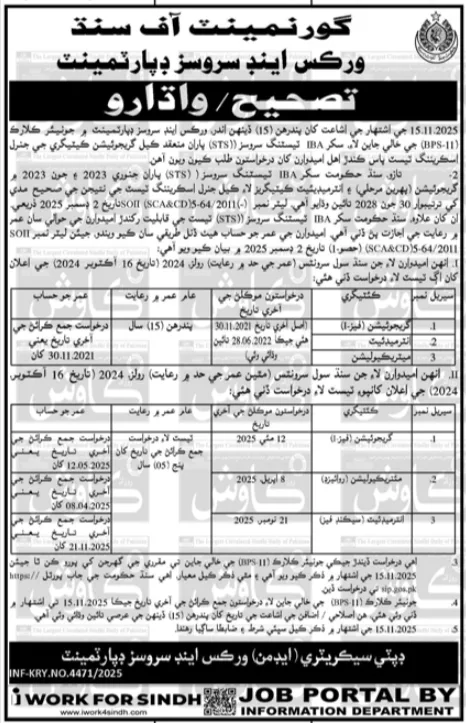 گورنمينٽ آف سنڌ
ورڪس اينڊ سروسز ڊپارٽمينٽ
تصحيح / واڌارو
15.11.2025 جي اشتهار جي اشاعت کان پندرهن (15) ڏينهن اندر، ورڪس اينڊ سروسز ڊپارٽمينٽ ۾ جونيئر ڪلارڪ
(BPS-11) جي خالي جاين لاءِ، سکر IBA ٽيسٽنگ سروسز (STS) پاران منعقد ڪيل گريجوئيشن ڪيٽيگري جي جنرل
اسڪريننگ ٽيسٽ پاس ڪندڙ اهل اميدوارن کان درخواستون طلب ڪيون ويون آهن.
2- تازو، سنڌ حڪومت سکر IBA ٽيسٽنگ سروسز (STS) پاران جنوري 2023 ۽ جون 2023 ۾
گريجوئيشن (پهرين مرحلي) ۽ انٽرميڊيٽ ڪيٽيگريز لاءِ ڪيل جنرل اسڪريننگ ٽيسٽ جي نتيجن جي صحيح مدي
کي ترتيبوار 30 جون 2028 تائين وڌايو آهي. ليٽر نمبر SOII (SCA&CD)5-64/2011 تاريخ 2 ڊسمبر 2025 ذريعي.
ان کان علاوه، سنڌ حڪومت سکر IBA ٽيسٽنگ سروسز (STS) جي ٽيسٽ جي قابليت رکندڙ اميدوارن جي حوالي سان عمر
۾ رعايت جي اجازت پڻ ڏني آهي. اميدوارن جي عمر جو حساب هيٺ ڏنل طريقي سان ڪيو ويندو، جيئن ليٽر نمبر SOII
(SCA&CD)5-64/2011 (حصو-I) تاريخ 2 ڊسمبر 2025 ۾ بيان ڪيو ويو آهي:
I. انهن اميدوارن لاءِ جن سنڌ سول سرونٽس (عمر جي حد ۾ رعايت) رولز، 2024 (تاريخ 16 آڪٽوبر 2024) جي اعلان
کان اڳ ٽيسٽ لاءِ درخواست ڏني هئي:
سيريل نمبر | ڪئٽيگري | درخواستون موڪلڻ جي آخري تاريخ | عام عمر ۾ رعايت | عمر جو حساب
1. | گريجوئيشن (فيز-I) | (اصل آخري تاريخ 30.11.2021 هئي جيڪا 28.06.2022 تائين وڌائي وئي) | پندرهن (15) سال | درخواست جمع ڪرائڻ جي آخري تاريخ يعني 30.11.2021 کان
2 | انٽرميڊئيٽ
3 | ميٽريڪيوليشن
II. انهن اميدوارن لاءِ جن سنڌ سول سرونٽس (مٿين عمر جي حد ۾ رعايت) رولز، 2024 (تاريخ 16 آڪٽوبر،
2024) جي اعلان کانپوءِ ٽيسٽ لاءِ درخواست ڏني هئي:
سيريل نمبر | ڪئٽيگري | درخواستون موڪلڻ جي آخري تاريخ | عام عمر ۾ رعايت | عمر جو حساب
1. | گريجوئيشن (فيز-I) | 12 مئي 2025 | ٽيسٽ لاءِ درخواست جمع ڪرائڻ جي تاريخ کان پنج (05) سال | درخواست جمع ڪرائڻ جي آخري تاريخ يعني 12.05.2025 کان
2. | مئٽريڪيوليشن (روائيزڊ) | 8 اپريل 2025 | درخواست جمع ڪرائڻ جي آخري تاريخ يعني 08.04.2025 کان
3 | انٽرميڊئيٽ (سيڪنڊ فيز) | 21 نومبر 2025 | درخواست جمع ڪرائڻ جي آخري تاريخ يعني 21.11.2025 کان
3. اهي درخواست ڏيندڙ جيڪي جونيئر ڪلارڪ (BPS-11) جي خالي جاين تي مقرري جي گهرجن کي پورو ڪن ٿا جيئن
15.11.2025 جي اشتهار ۾ ذڪر ڪيو ويو آهي ۽ مٿي ذڪر ڪيل معيار، اهي سنڌ حڪومت جي جاب پورٽل https://
sjp.gos.pk تي درخواست ڏين.
4. جونيئر ڪلارڪ (BPS-11) جي خالي جاين لاءِ درخواستون جمع ڪرائڻ جي آخري تاريخ جيڪا 15.11.2025 تي اشتهار ۾
ڏني وئي هئي، هن اصلاحي / اضافي جي اشاعت جي تاريخ کان پندرهن (15) ڏينهن جي عرصي تائين وڌائي وئي آهي.
5. 15.11.2025 جي اشتهار ۾ ذڪر ڪيل سڀئي شرط ۽ ضابطا ساڳيا رهندا.
ڊپٽي سيڪريٽري (ايڊمن) ورڪس اينڊ سروسز ڊپارٽمينٽ
INF-KRY.NO.4471/2025
i WORK FOR SINDH
www.iwork4sindh.com
JOB PORTAL BY
INFORMATION DEPARTMENT